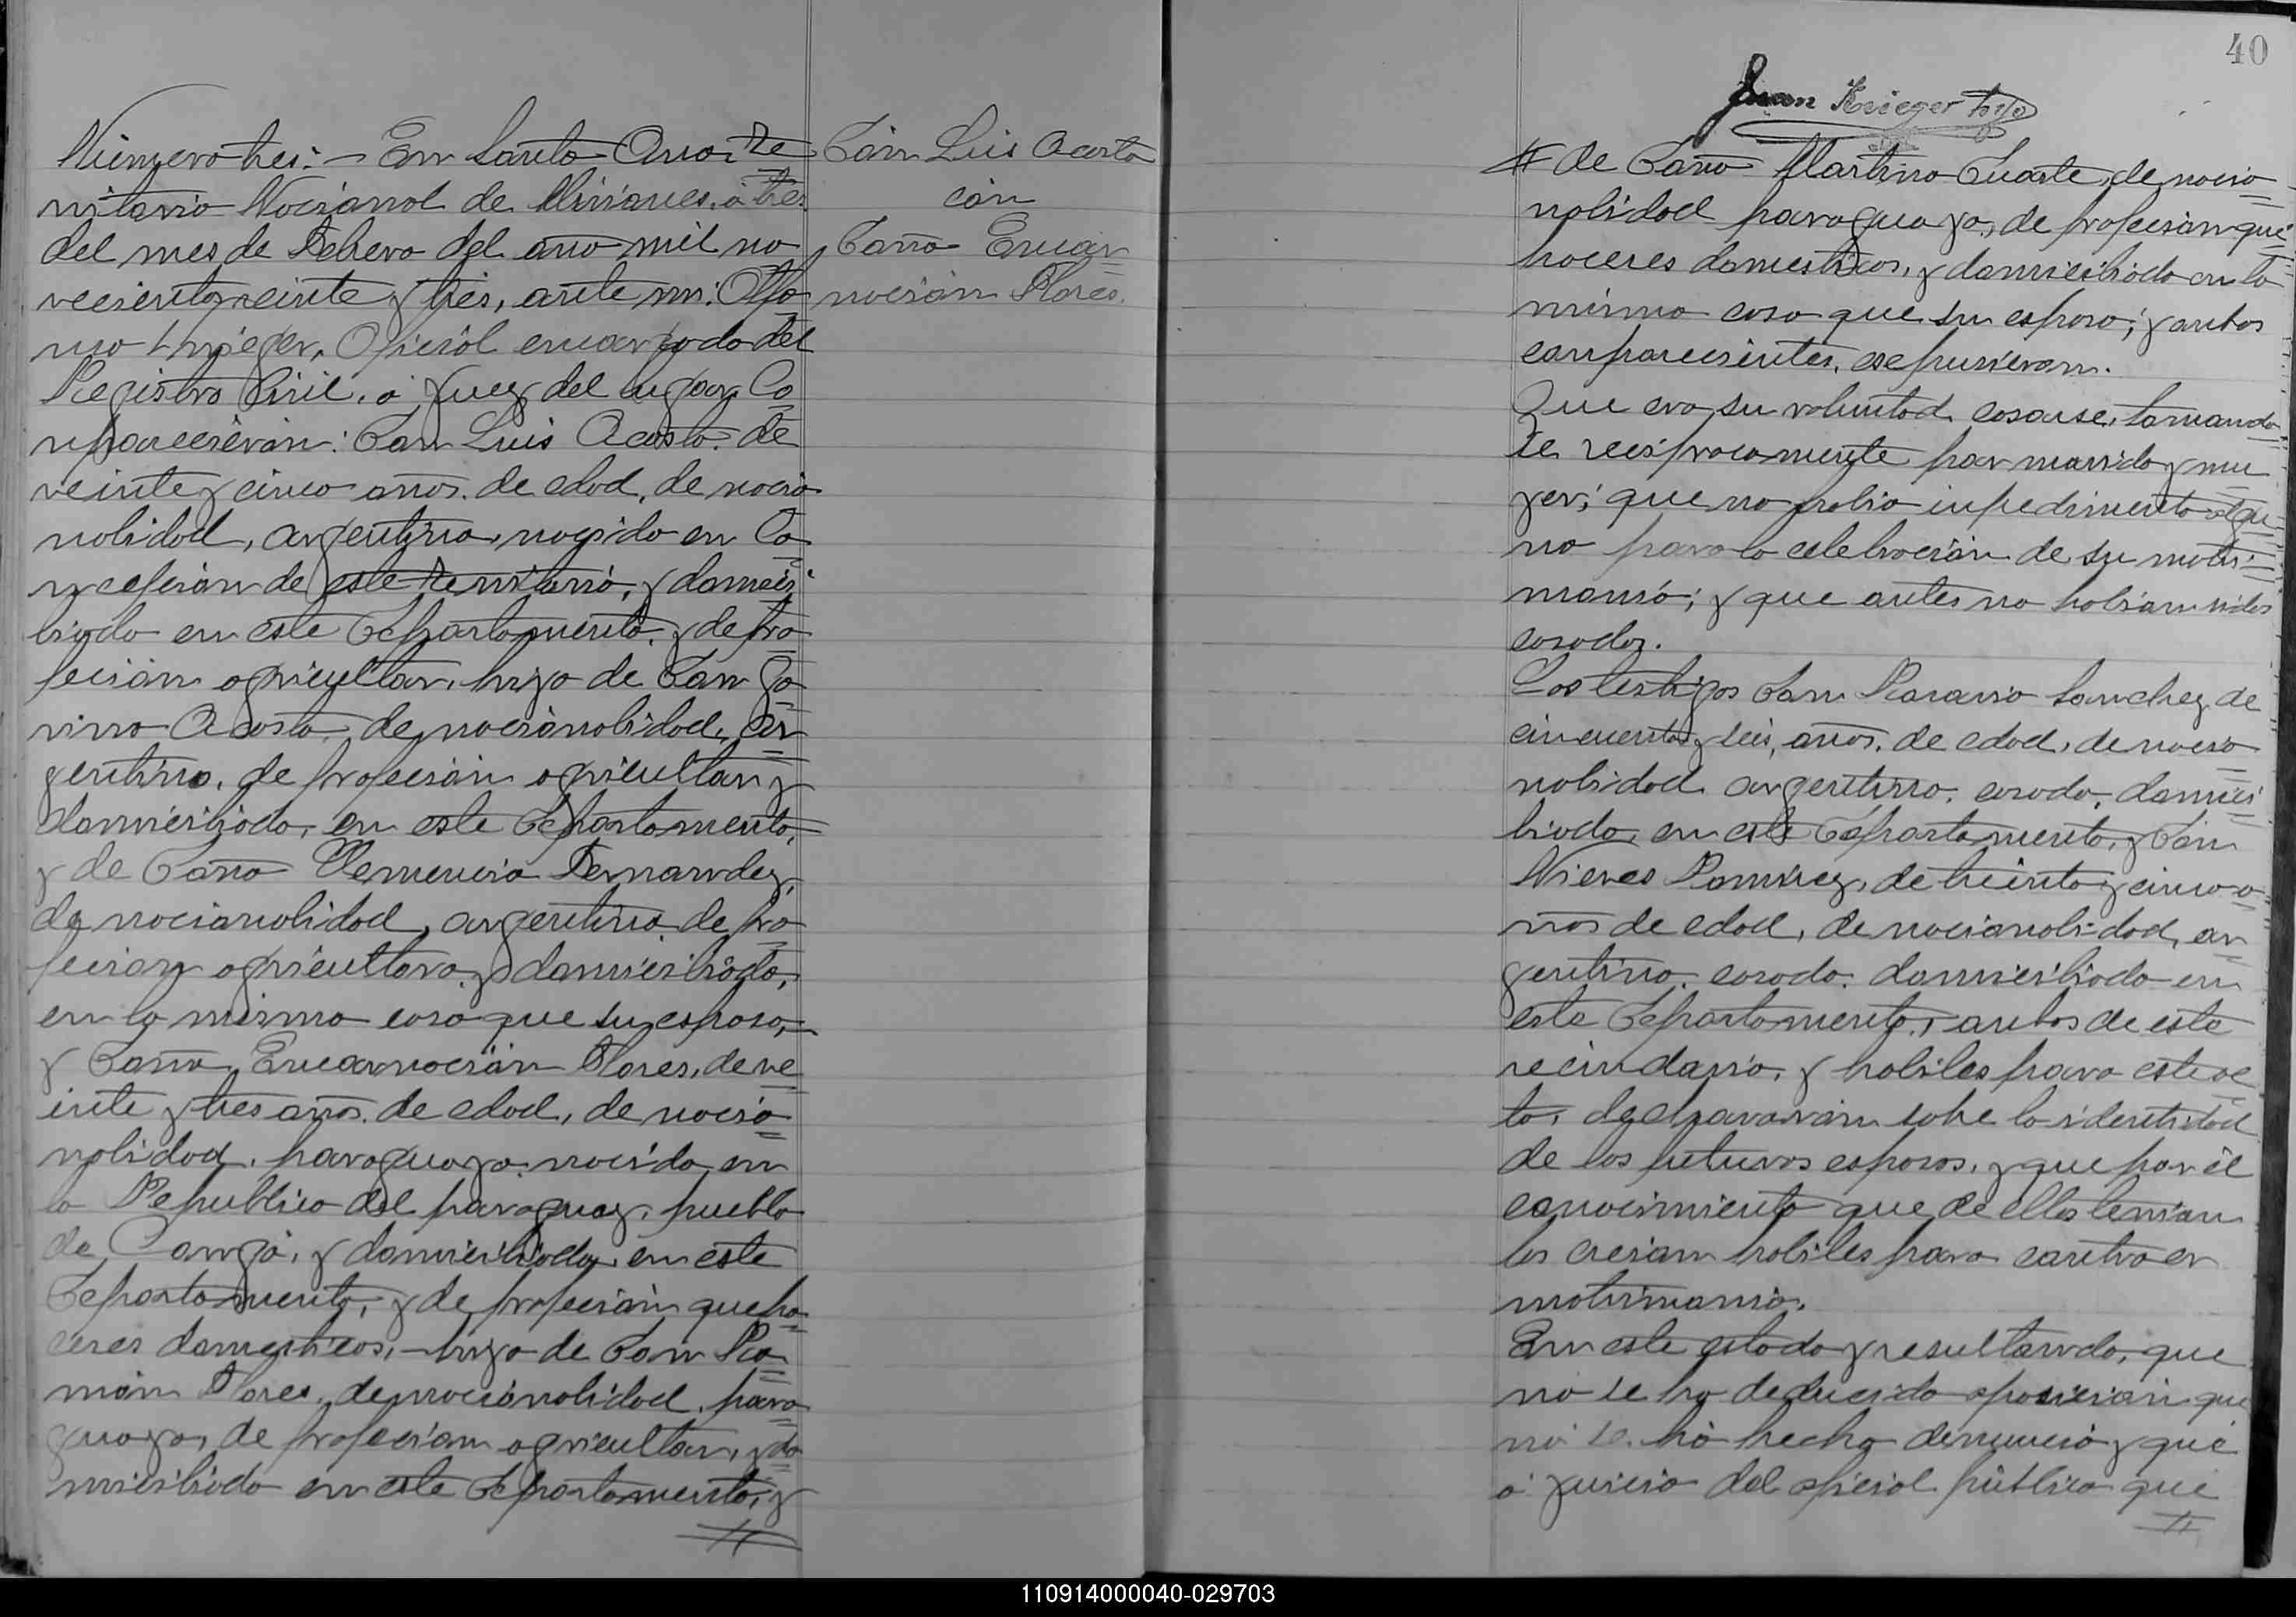 Número tres:- En Santa Ana, Te
rritorio Nacional de Misiones, á tres
del mes de Febrero del año mil no
vecientos veinte y tres, ante mi:
Krieger, Oficial encargado del
Registro Civil, o Juez del lugar, Co
mparecieron: Don Luis Acosta, de
veinte y cinco años, de edad, de nacio
nalidad, argentino, nacido en Co
ncepción de este territorio, y domici
liado en este Departamento, y de pro
fesión agricultor, hijo de Don Ga
vino Acosta, de nacionalidad, Ar
gentino, de profesión agricultor y
domiciliado, en este Departamento,
y de Doña Clemencia Fernandez,
de nacionalidad, argentina, de pro
fesion agricultora, y domiciliada,
en la misma casa que su esposo,
y Doña Encarnación Flores, de ve
inte y tres años, de edad, de nacio
nalidad, paraguaya, nacida en
la Republica del paraguay, pueblo
de y domiciliada, en este
Departamento, y de profesión queha
ceres domesticos, - hija de Don Ra
món Flores, de nacionalidad, para
guayo, de profesion agricultor, y do
miciliado en este Departamento, y
#
Dón Luis Acosta
cón
Doña Encar
nación Flores.
40
Juan Krieger
# de Doña Martina Duarte, de nacio
nalidad paraguaya, de profesion que
haceres domesticos, y domiciliada en la
misma casa que su esposo; y ambos
comparecientes, expusieron.
Que era su voluntad casarse, tomando
se reciprocamente por marido y mu
yer; que no habia inpedimento algu
no para la celebración de su matri
monió; y que antes no habian sidos
casados.
Los testigos Don Sanchez, de
cincuenta y seis, años, de edad, de nacio
nalidad argentino, casado, domici
liado, en este Departamento, y Dón
Nieves Ramirez, de treinta y cinco a
ños de edad, de nacionalidad, ar
gentino, casado, domiciliado en
este Departamento, ambos de este
vecindario, y habiles para este ac
to, declararón sobre la identidad
de los futuros esposos, y que por él
conocimiento que de ellos tenian
los creian habiles para contraer
matrimonio.
En este estado y resultando, que
no se ha deducido oposición que
no se há hecho denuncia y que
a yuicio del oficial público que
#
110914000040-029703